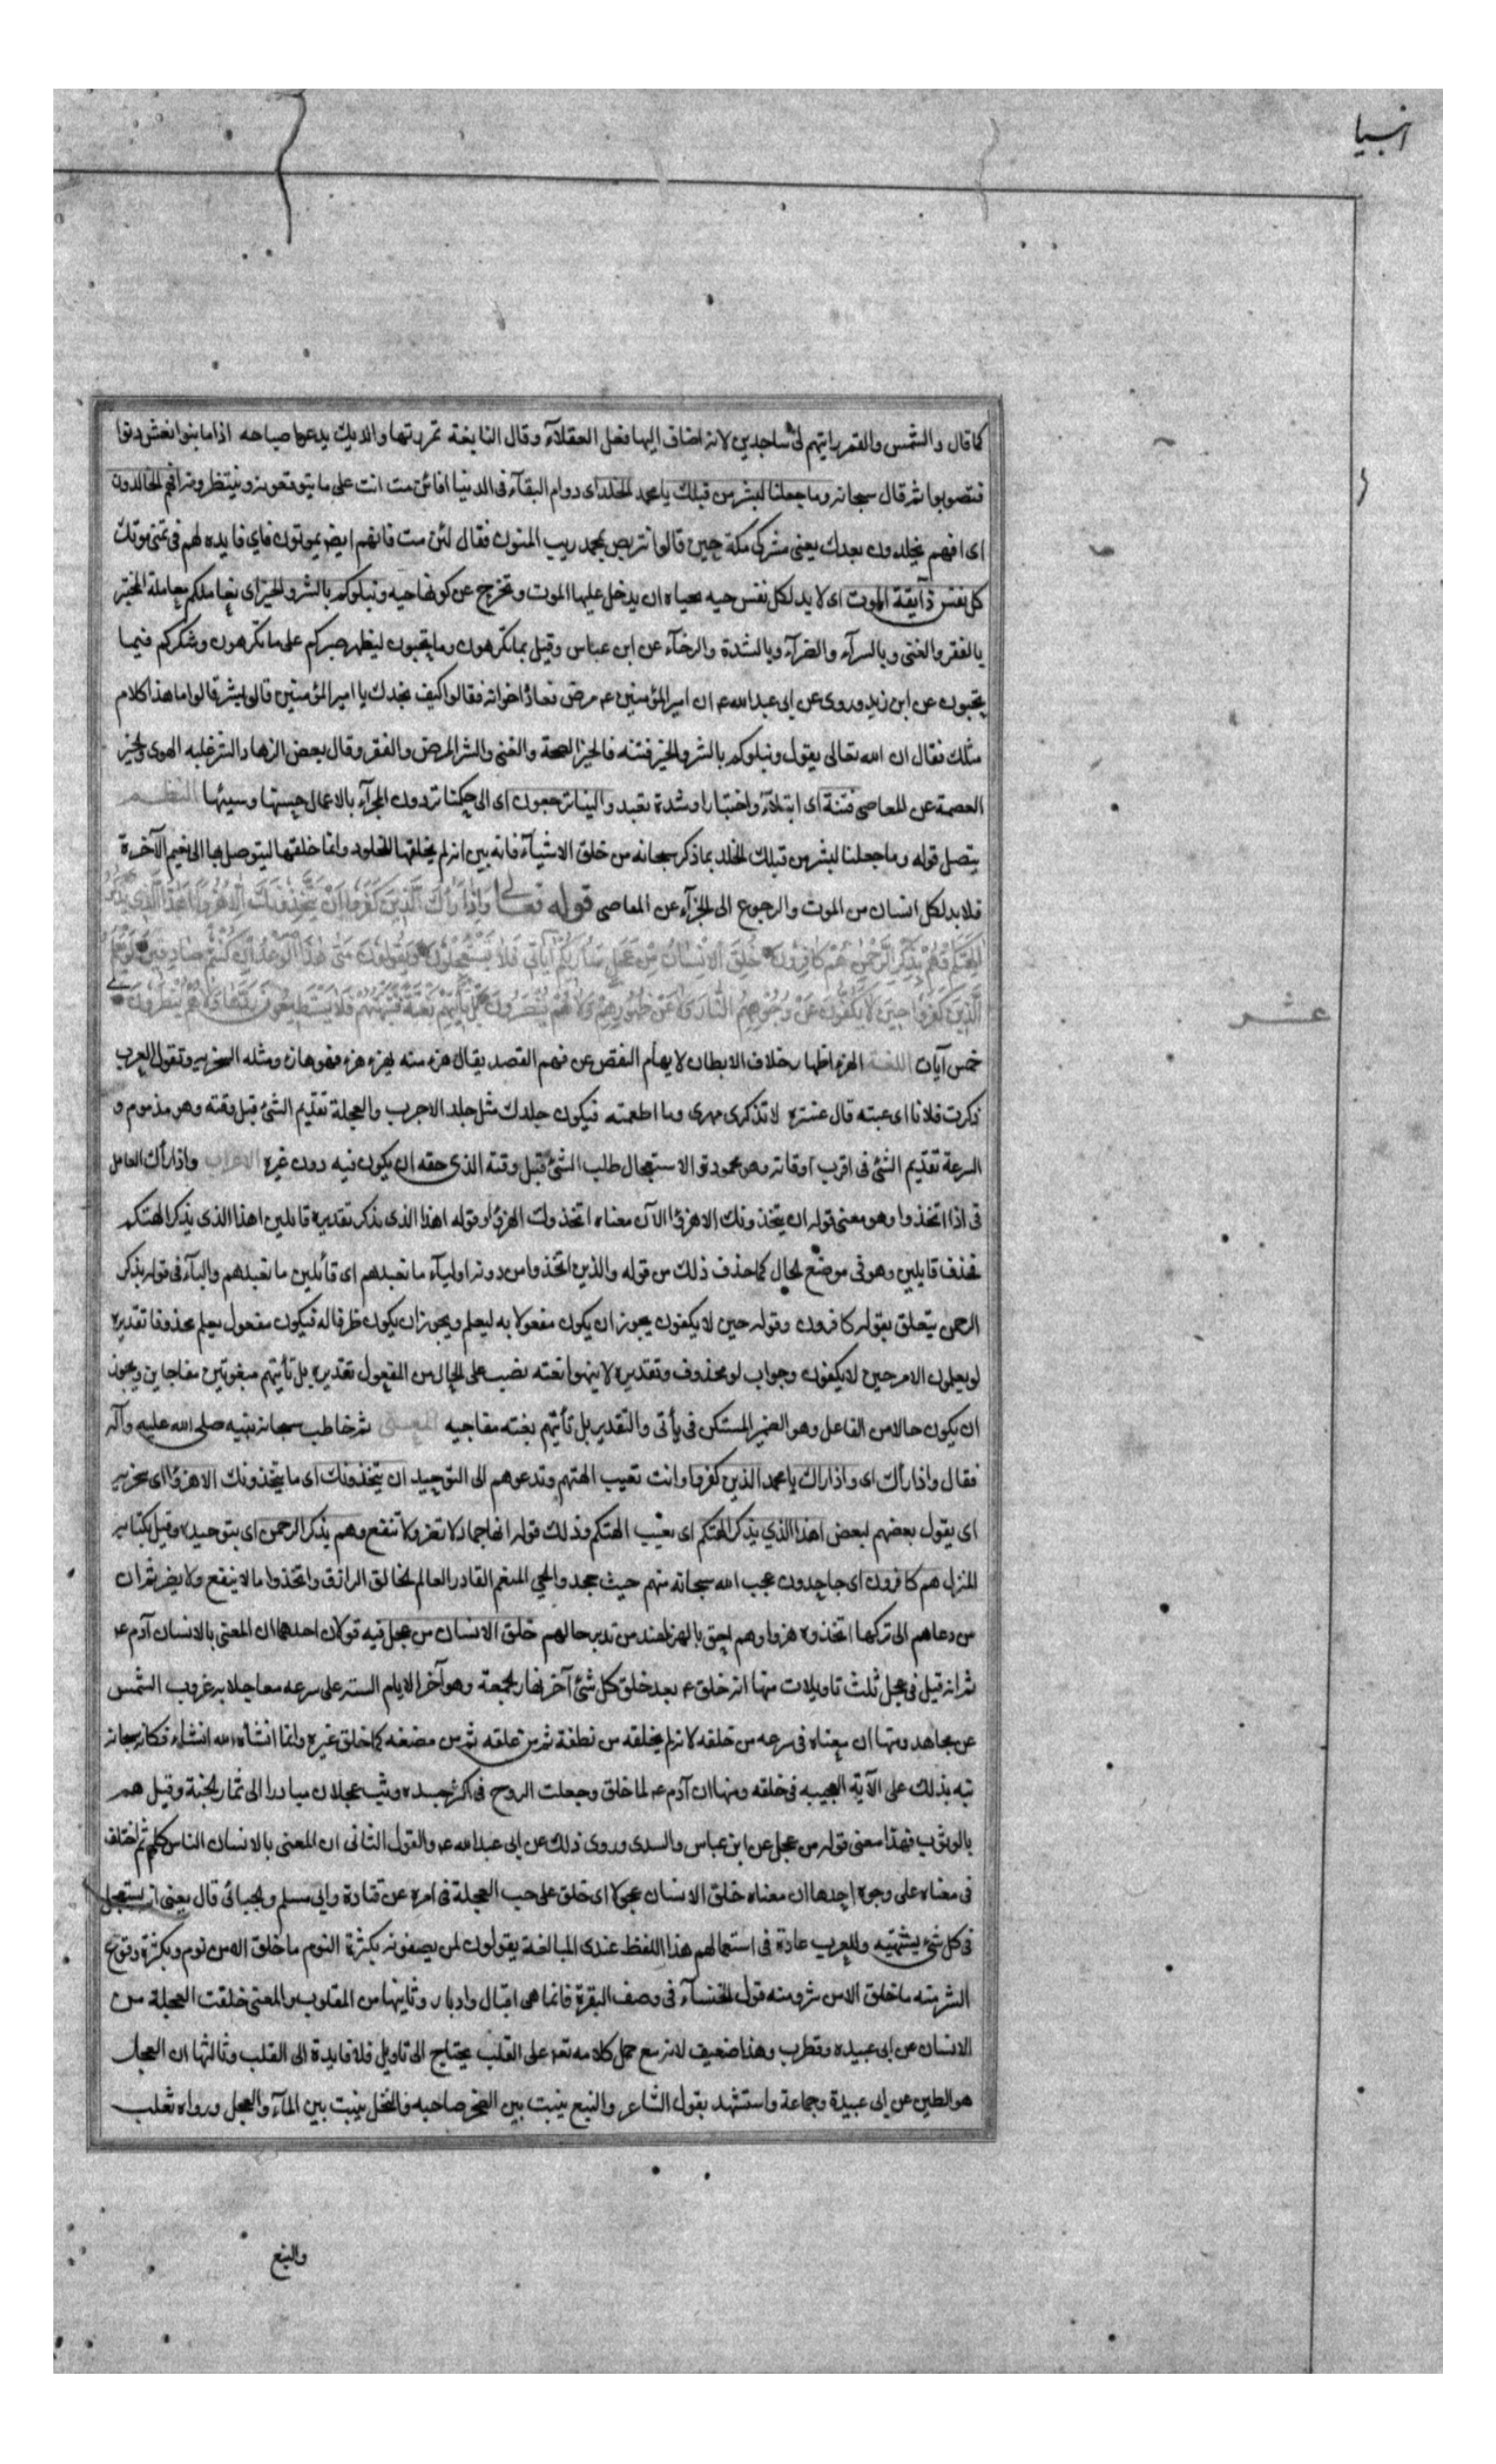 انبیا
كما قال والشمس والقمر رايتهم لى ساجدين لانه اضاف اليها فعل العقلآء وقال النابغة تمررتها والديك يدعوا صياحه اذا ما بنوا نعش دنوا
فتصوبوا ثم قال سبحانه وما جعلنا لبشر من قبلك يا محمد الخلد اى دوام البقآء فى الدنيا افائن مت انت على ما يتوقعونه وينتظرونه افهم الخالدون
اى افهم يخلدون بعدك يعنى مشركى مكة حين قالوا نتربص بمحمد ريب المنون فقال لئن مت فانهم ايضا يموتون فاى فايده لهم فى تمنى موتك
كل نفس ذآيقة الموت اى لا بد لكل نفس حيه بحياه ان يدخل عليها الموت وتخرج عن كونها حيه ونبلوكم بالشر والخير اى نعاملكم معاملة المختبر
بالفقر والغنى وبالسرآء والضرآء وبالشدة والرخآء عن ابن عباس وقيل بما تكرهون وما تحبون ليظهر صبركم على ما تكرهون وشكركم فيما
تحبون عن ابن زيد وروى عن ابى عبد الله ع ان امير المؤمنين ع مرض فعاده اخوانه فقالوا كيف نجدك يا امير المؤمنين قال بشر قالوا ما هذا كلام
مثلك فقال ان الله تعالى يقول ونبلوكم بالشر والخير فتنه فالخير الصحة والغنى والشر المرض والفقر وقال بعض الزهاد الشر غلبه الهوى والخير
العصمة عن المعاصى فتنة اى ابتلآء واختبارا وشدة تعبد والينا ترجعون اى الى حكمنا تردون للجزآء بالاعمال حسنها وسيئها النظم
يتصل قوله وما جعلنا لبشر من قبلك الخلد بما ذكر سبحانه من خلق الاشيآء فانه بين انه لم يخلقها للخلود وانما خلقها ليتوصل بها الى نعيم الآخرة
فلا بد لكل انسان من الموت والرجوع الى الجزآء عن المعاصى قوله تعالى وَاِذَا رَاٰكَ الَّذِينَ كَفَرُوا اِنْ يَتَّخِذُونَكَ اِلَّا هُزُوًا اَهٰذَا الَّذِى يَذْكُرُ
اٰلِهَتَكُمْ وَهُمْ بِذِكْرِ الرَّحْمٰنِ هُمْ كَافِرُونَ خُلِقَ الْاِنْسَانُ مِنْ عَجَلٍ سَاُرِيكُمْ اٰيَاتِى فَلَا تَسْتَعْجِلُونِ وَيَقُولُونَ مَتٰى هٰذَا الْوَعْدُ اِنْ كُنْتُمْ صَادِقِينَ لَوْ يَعْلَمُ
الَّذِينَ كَفَرُوا حِينَ لَا يَكُفُّونَ عَنْ وُجُوهِهِمُ النَّارَ وَلَا عَنْ ظُهُورِهِمْ وَلَا هُمْ يُنْصَرُونَ بَلْ تَاْتِيهِمْ بَغْتَةً فَتَبْهَتُهُمْ فَلَا يَسْتَطِيعُونَ رَدَّهَا وَلَا هُمْ يُنْظَرُونَ
عشر
خمس آيات اللغة الهزء اظهار خلاف الابطان لايهام النقص عن فهم القصد يقال هزء منه يهزء هزء فهو هازء ومثله السخريه وتقول العرب
ذكرت فلانا اى عبته قال عنتره لا تذكرى مهرى وما اطعمته فيكون جلدك مثل جلد الاجرب والعجلة تقديم الشئ قبل وقته وهو مذموم و
السرعة تقديم الشئ فى اقرب اوقاته وهو محمود والاستعجال طلب الشئ قبل وقته الذى حقه ان يكون فيه دون غيره الاعراب واذا رأك العامل
فى اذا اتخذوا وهو معنى قوله ان يتخذونك الا هزؤا الآن معناه اتخذوك هزؤا وقوله اهذا الذى يذكر تقديره قايلين اهذا الذى يذكر الهتكم
فحذف قايلين وهو فى موضع الحال كما حذف ذلك من قوله والذين اتخذوا من دونه اوليآء ما نعبدهم اى قائلين ما نعبدهم والبآء فى قوله بذكر
الرحمن يتعلق بقوله كافرون وقوله حين لا يكفون يجوز ان يكون مفعولا به ليعلم ويجوز ان يكون ظرفا له فيكون مفعول يعلم محذوفا تقديره
لو يعلمون الامر حين لا يكفون وجواب لو محذوف وتقديره لانتهوا بغته نصب على الحال من المفعول تقديره بل تأتيهم مبغوتين مفاجاين ويجوز
ان يكون حالا من الفاعل وهو الضمير المستكن فى يأتى والتقدير بل تأتيهم بغته مفاجيه المعنى ثم خاطب سبحانه نبيه صلى الله عليه وآله
فقال واذا رأك اى واذا راك يا محمد الذين كفروا وانت تعيب الهتهم وتدعوهم الى التوحيد ان يتخذونك اى ما يتخذونك الا هزؤا اى سخريه
اى يقول بعضهم لبعض اهذا الذي يذكر الهتكم اى يعيب الهتكم وذلك قوله انها جماد لا تضر ولا تنفع وهم بذكر الرحمن اى بتوحيده وقيل بكتابه
المنزل هم كافرون اى جاحدون عجب الله سبحانه منهم حيث جحدوا الحى المنعم القادر العالم الخالق الرازق واتخذوا ما لا ينفع ولا يضر ثم ان
من دعاهم الى تركها اتخذوه هزوا وهم احق بالهزء عند من تدبر حالهم خلق الانسان من عجل فيه قولان احدهما ان المعنى بالانسان آدم ع
ثم انه قيل فى عجل ثلث تاويلات منها انه خلق ع بعد خلق كل شئ آخر نهار الجمعة وهو آخر الايام السته على سرعه معاجلا به غروب الشمس
عن مجاهد ومنها ان معناه فى سرعه من خلقه لانه لم يخلقه من نطفة ثم من علقه ثم من مضغه كما خلق غيره وانما انشأه الله انشاء فكانه سبحانه
نبه بذلك على الآية العجيبه فى خلقه ومنها ان آدم ع لما خلق وجعلت الروح فى اكثر جسده وثب عجلان مبادرا الى ثمار الجنة وقيل هم
بالوثوب فهذا معنى قوله من عجل عن ابن عباس والسدى وروى ذلك عن ابى عبد الله ع والقول الثانى ان المعنى بالانسان الناس كلهم ثم اختلف
فى معناه على وجوه احدها ان معناه خلق الانسان عجولا اى خلق على حب العجلة فى امره عن قتادة وابى مسلم والجبائى قال يعنى انه يستعجل
فى كل شئ يشتهيه وللعرب عادة فى استعمالهم هذا اللفظ عند المبالغة يقولون لمن يصفونه بكثرة النوم ما خلق الا من نوم وبكثرة وقوع
الشر منه ما خلق الا من شر ومنه قول الخنسآء فى وصف البقرة فانما هى اقبال وادبار وثانيها من المقلوب والمعنى خلقت العجلة من
الانسان عن ابى عبيده وقطرب وهذا ضعيف لانه مع حمل كلامه تعه على القلب يحتاج الى تاويل فلا فايدة الى القلب وثالثها ان العجل
هو الطين عن ابى عبيدة وجماعة واستشهد بقول الشاعر والنبع ينبت بين الصخر صاحبه والنخل ينبت بين المآء والعجل ورواه ثعلب
والنبع